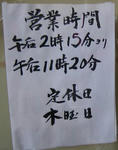 営業時間
午后2時15分ヨリ
午后11時20分
定休日
木曜日